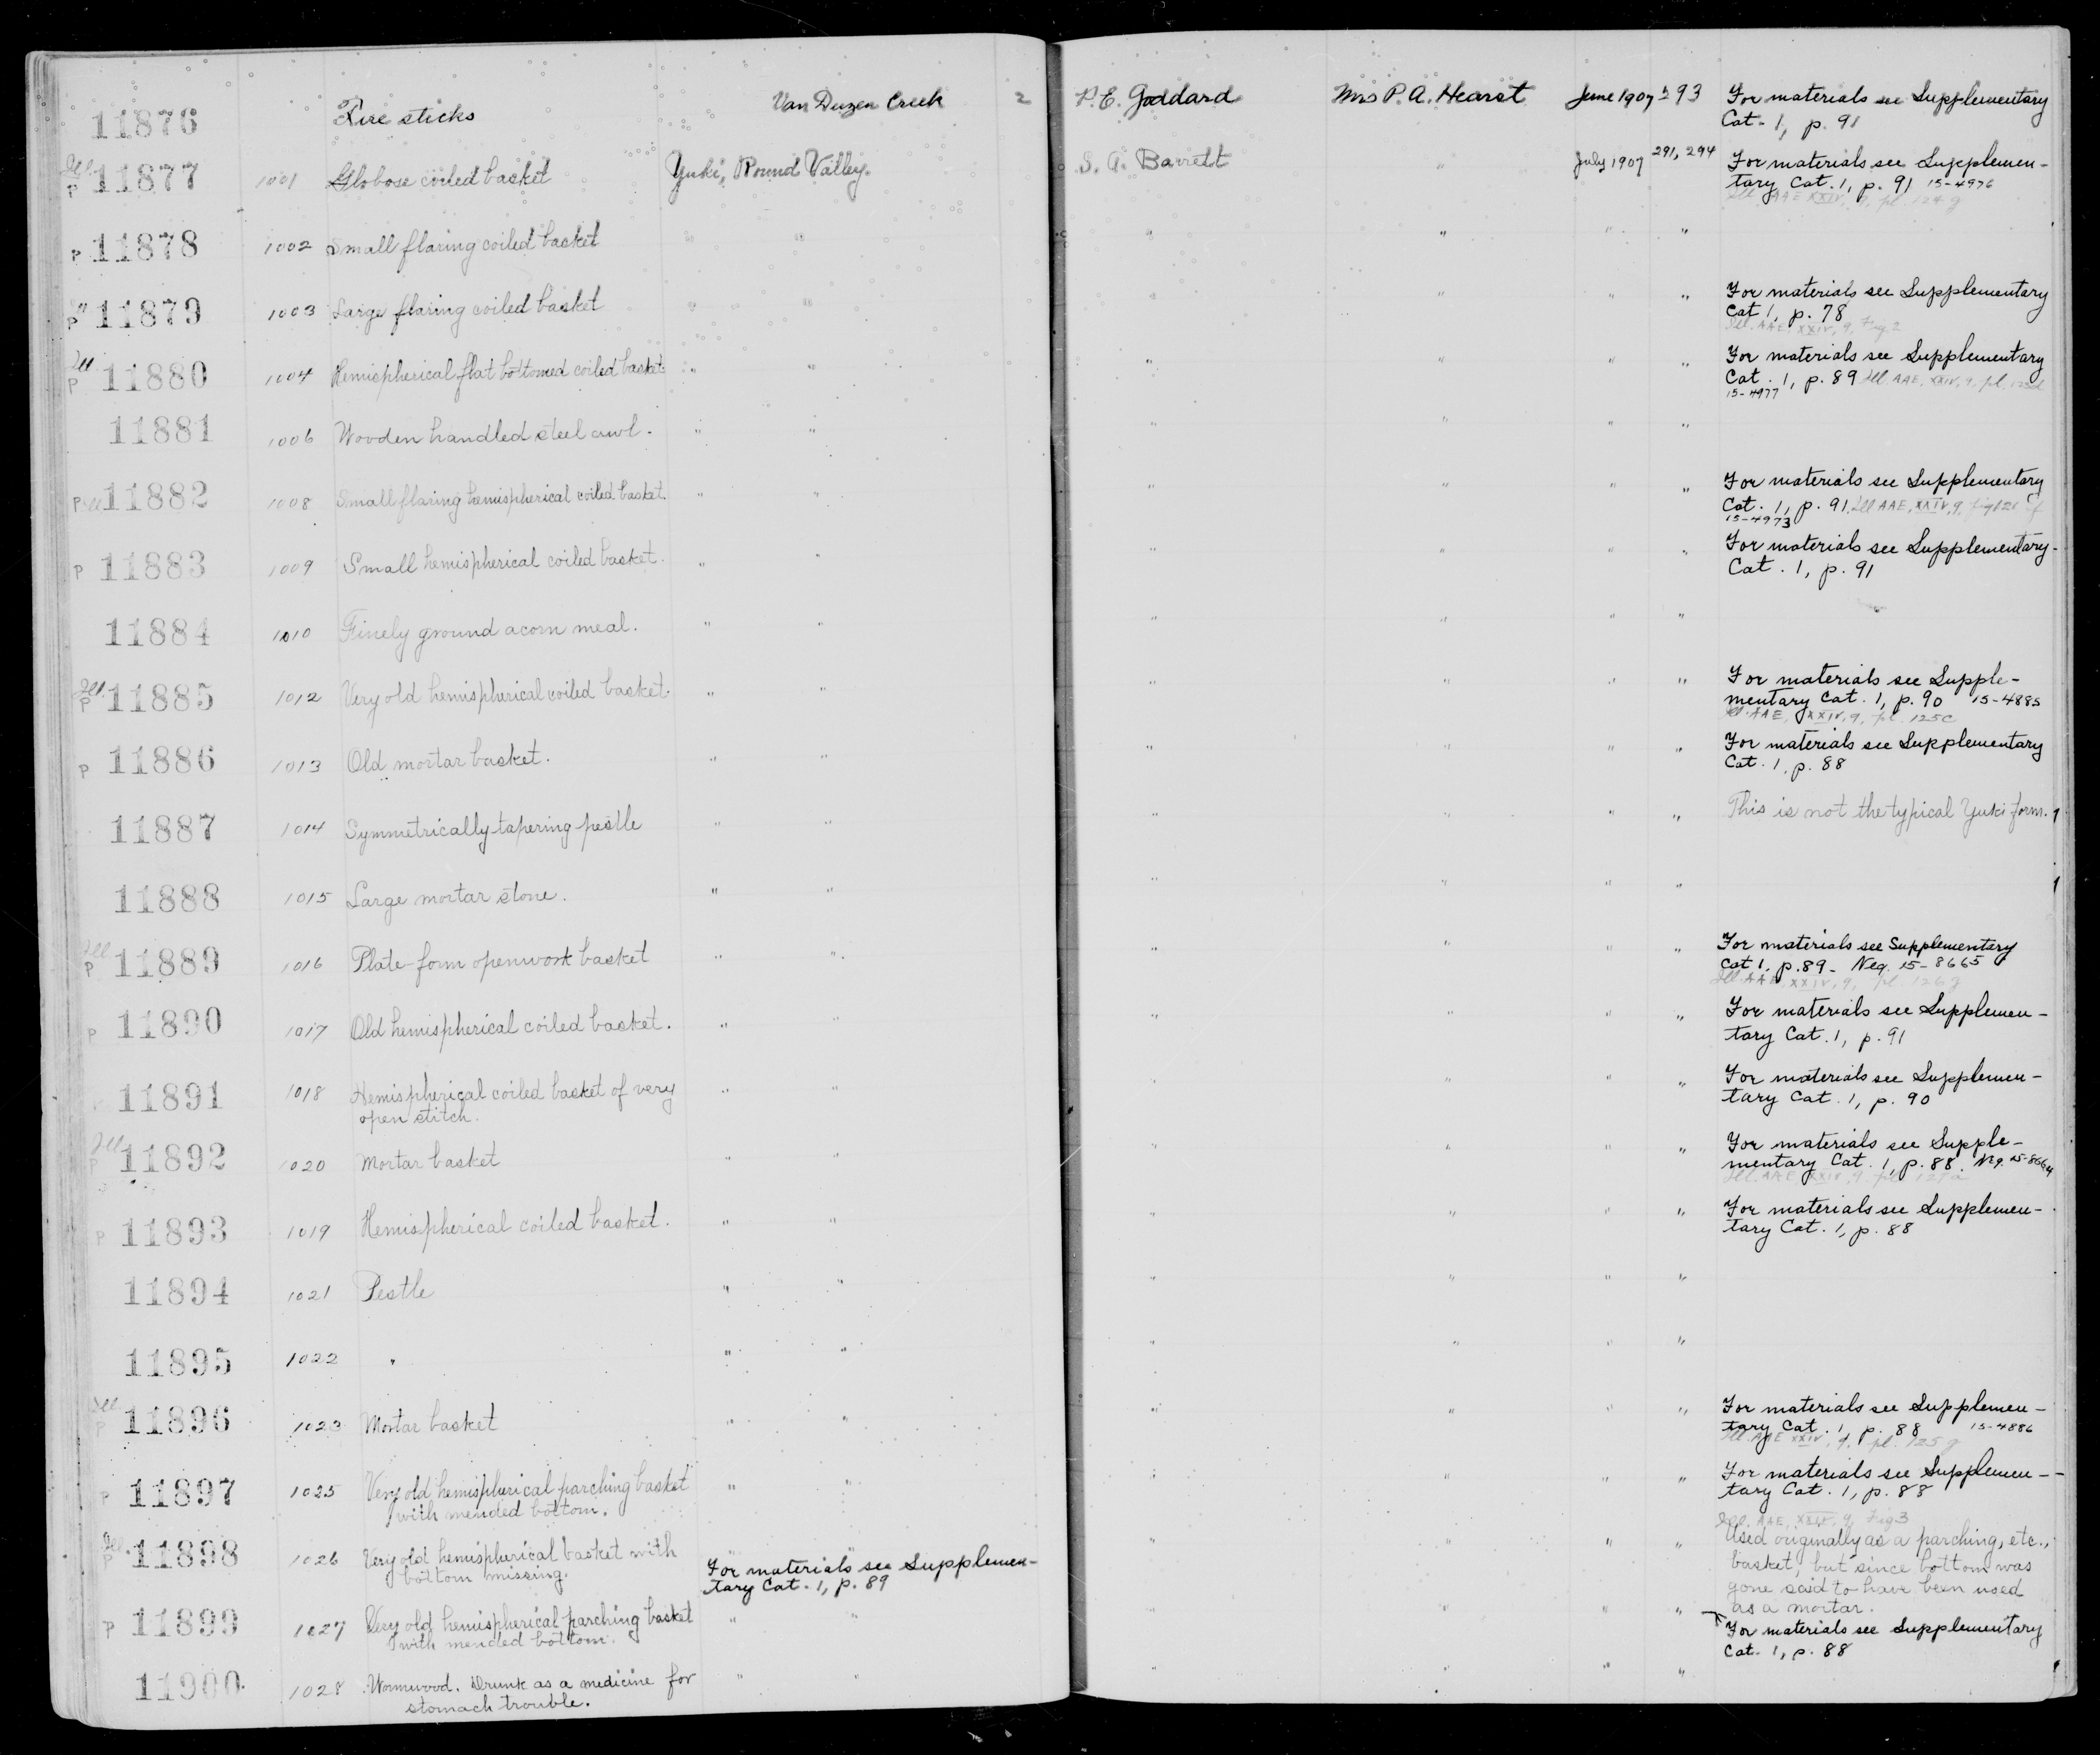 11876 Fire sticks Van Duzen Creek 2 P.E. Goddard Mrs P.A. Hearst June 1907 293 For materials see Supplementary
Cat. 1, p. 91
Ill P 11877 1001 Globose coiled basket Yuki, Round Valley. S.A. Barrett " July 1907 291, 294 For materials see Supplemen-
tary Cat. 1, p. 91 15-4976
Ill. AAE XXIV, 9, pl. 124 g
P 11878 1002 Small flaring coiled basket " " " " " "
P 11879 1003 Large flaring coiled basket " " " " " " For materials see Supplementary
Cat 1, p. 78
Ill. AAE XXIV, 9, Fig. 2
Ill P 11880 1004 Hemispherical flat bottomed coiled basket " " " " " " For materials see Supplementary
Cat. 1, p. 89 Ill. AAE, XXIV, 9, pl.
15-4977
11881 1006 Wooden handled steel awl. " " " " " "
P Ill 11882 1008 Small flaring hemispherical coiled basket. " " " " " " For materials see Supplementary
Cat. 1, p. 91. Ill AAE, XXIV, 9,
15-4973
P 11883 1009 Small hemispherical coiled basket. " " " " " " For materials see Supplementary
Cat. 1, p. 91
11884 1010 Finely ground acorn meal. " " " " " "
Ill. P 11885 1012 Very old hemispherical coiled basket. " " " " " " For materials see Supple-
mentary Cat. 1, p. 90 15-4885
Ill. AAE, XXIV, 9, pl. 125c
P 11886 1013 Old mortar basket. " " " " " " For materials see Supplementary
Cat. 1, p. 88
11887 1014 Symmetrically tapering pestle " " " " " " This is not the typical Yuki form. 1
11888 1015 Large mortar stone. " " " " " " 1
Ill P 11889 1016 Plate-form openwork basket " " " " " " For materials see Supplementary
Cat 1, p. 89- Neg. 15-8665
Ill. AAE, XXIV, 9, pl. 126 g
P 11890 1017 Old hemispherical coiled basket. " " " " " " For materials see Supplemen-
tary Cat. 1, p. 91
11891 1018 Hemispherical coiled basket of very " " " " " " For materials see Supplemen-
open stitch. tary Cat. 1, p. 90
Ill P 11892 1020 Mortar basket " " " " " " For materials see Supple-
mentary Cat. 1, p. 88. Neg. 15-8664
Ill. AAE XXIV, 9, pl
P 11893 1019 Hemispherical coiled basket. " " " " " " For materials see Supplemen-
tary Cat. 1, p. 88
11894 1021 Pestle " " " " " "
11895 1022 " " " " " " "
Ill P 11896 1023 Mortar basket " " " " " " For materials see Supplemen-
tary Cat. 1, p. 88 15-4886
Ill. AAE XXIV, 9, pl. 125 g
P 11897 1025 Very old hemispherical parching basket " " " " " " For materials see Supplemen-
with mended bottom. tary Cat. 1, p. 88
Ill. AAE, XXIV, 9, Fig 3
Ill P 11898 1026 Very old hemispherical basket with " " " " " " Used originally as a parching, etc.,
bottom missing. For materials see Supplemen- basket, but since bottom was
tary Cat. 1, p. 89 gone said to have been used
as a mortar.
P 11899 1027 Very old hemispherical parching basket " " " " " " For materials see Supplementary
with mended bottom. Cat. 1, p. 88
11900 1028 Wormwood. Drunk as a medicine for " " " " " "
stomach trouble.